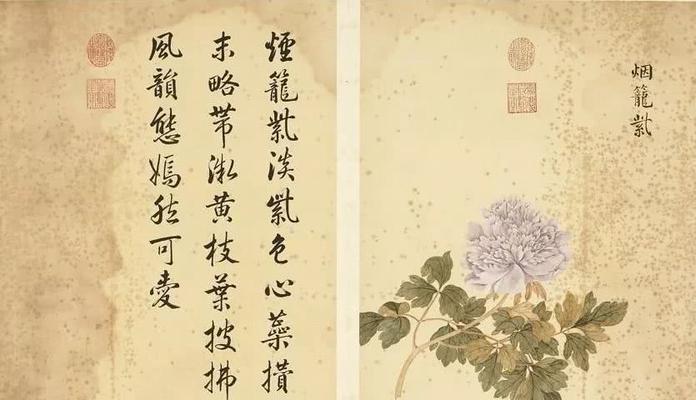 烟籠紫
煙籠紫淡紫色心蘂攢
末略帶微黄枝葉披拂
風韻態嫣然可愛